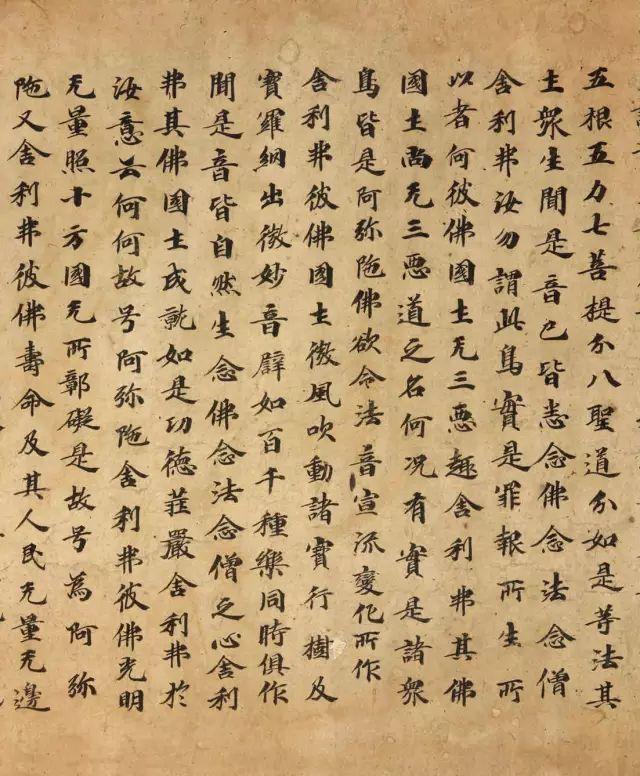 五根五力七菩提分八聖道分如是等法其
土衆生聞是音已皆悉念佛念法念僧
舍利弗汝勿謂此鳥實是罪報所生所
以者何彼佛國土无三惡趣舍利弗其佛
國土尚无三惡道之名何况有實是諸衆
鳥皆是阿弥陁佛欲令法音宣流變化所作
舍利弗彼佛國土微風吹動諸寳行樹及
寳羅網出微妙音辟如百千種樂同時俱作
聞是音皆自然生念佛念法念僧之心舍利
弗其佛國土成就如是功德莊嚴舍利弗於
汝意云何何故号阿弥陁舍利弗彼佛光明
无量照十方國无所鄣礙是故号為阿弥
陁又舍利弗彼佛壽命及其人民无量无邊